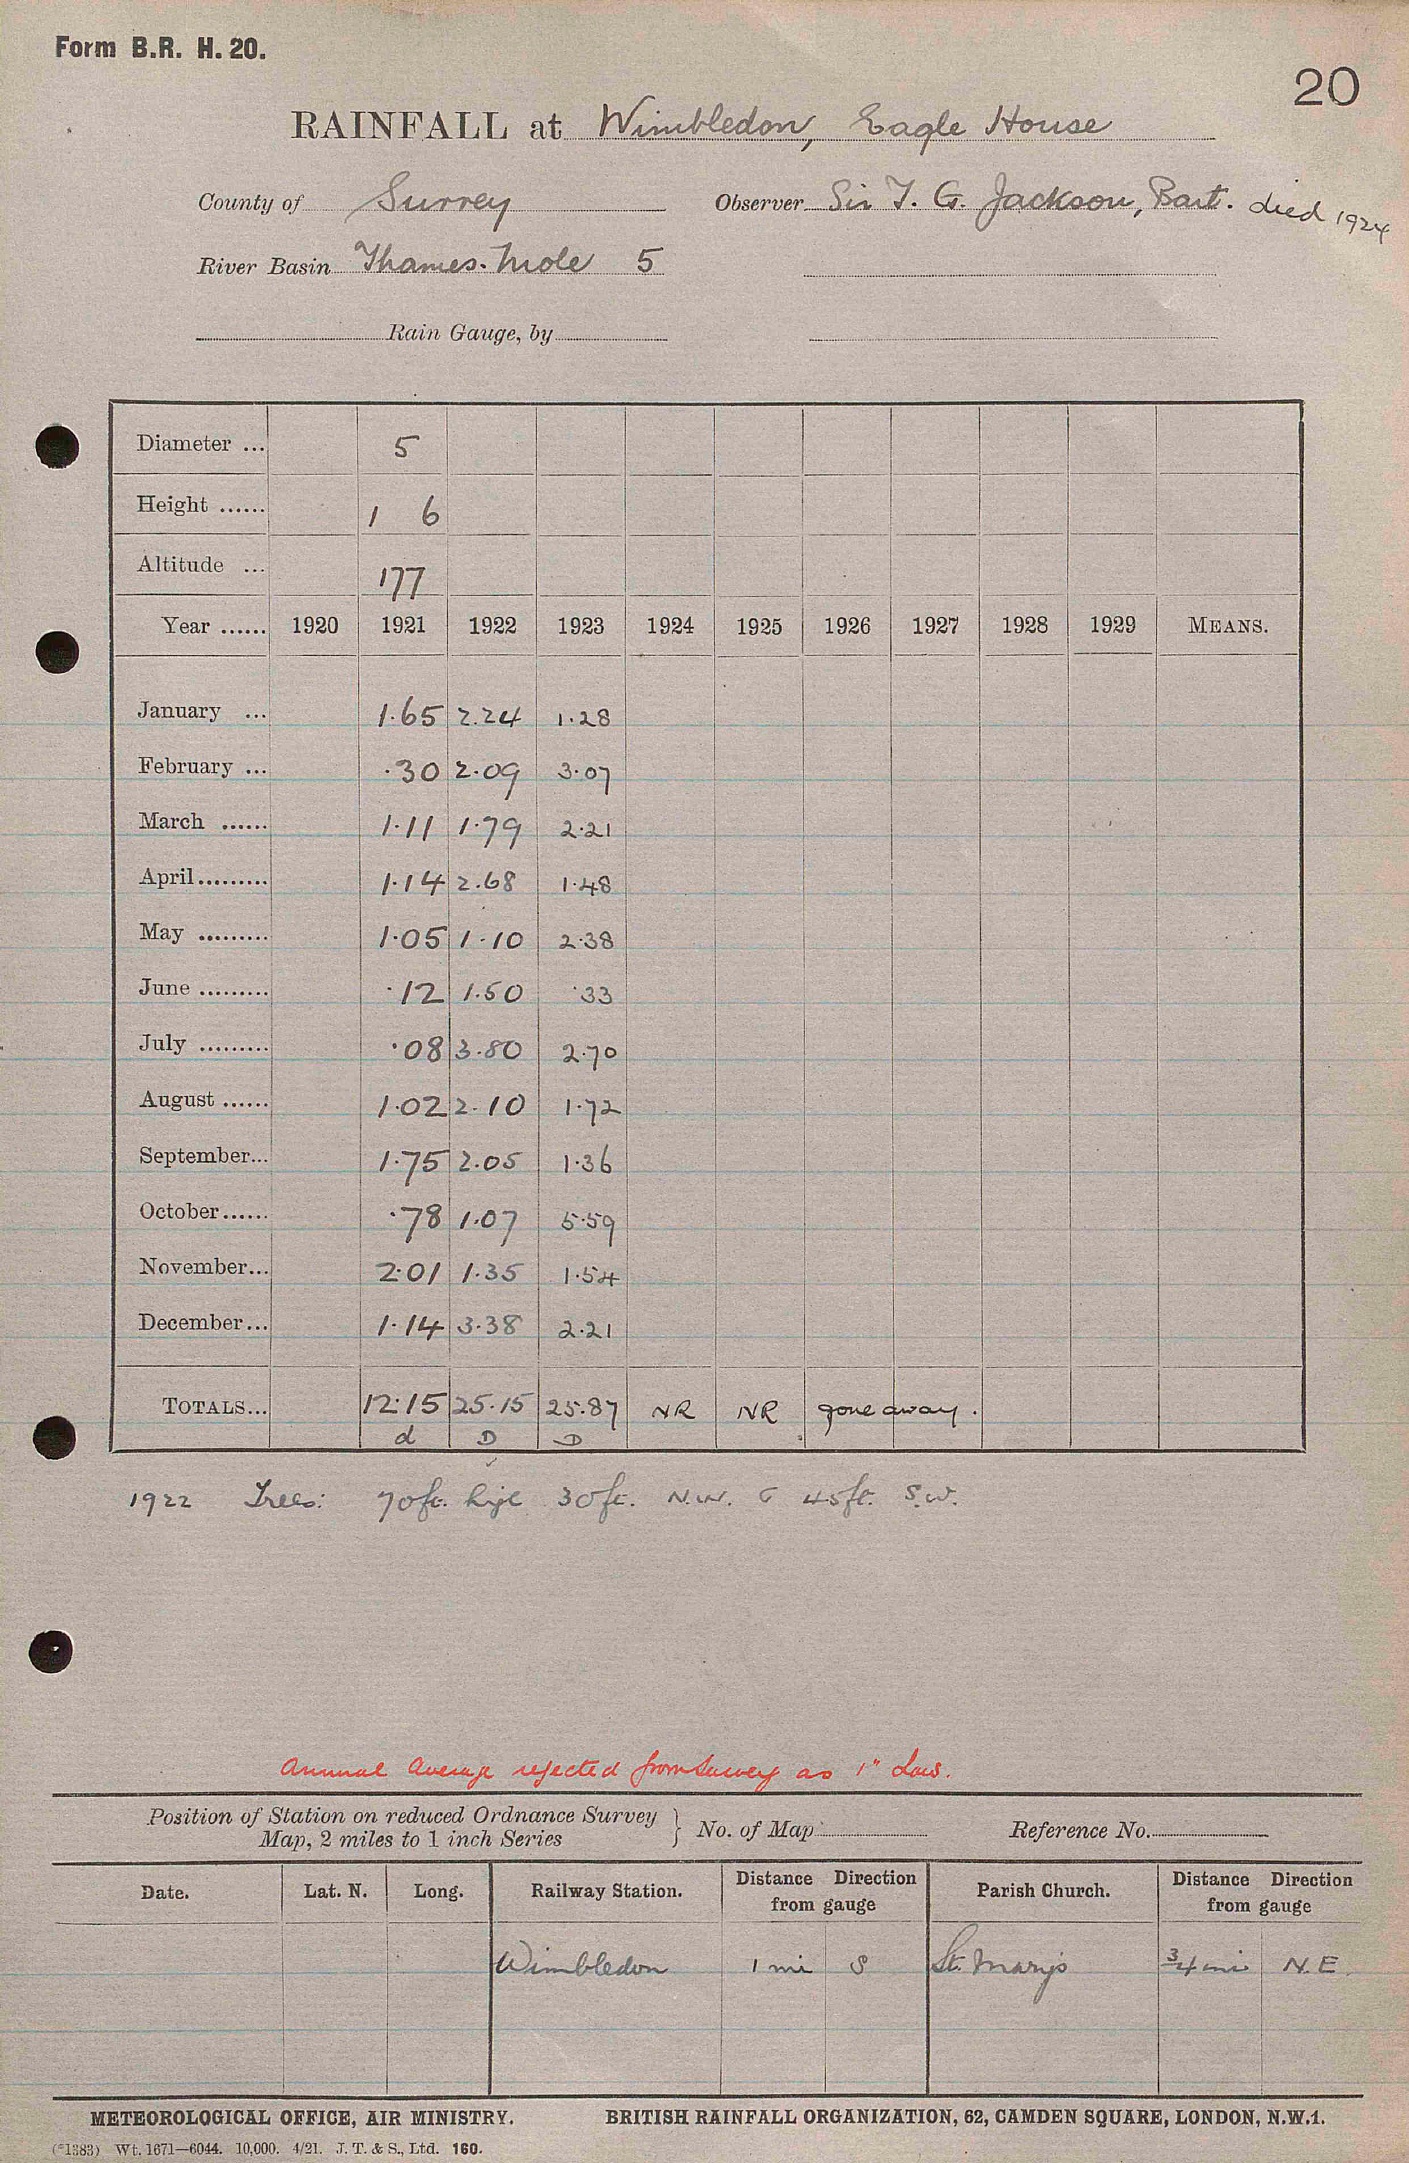 Form B.R. H. 20.
20
RAINFALL at Wimbledon, Eagle House
County of Surrey Observer Sir T. G. Jackson, Bart. died 1924
River Basin Thames. Mole 5
Rain Gauge, by
Diameter ... 5
Height ...... 1 6
Altitude ... 177
Year ...... 1920 1921 1922 1923 1924 1925 1926 1927 1928 1929 MEANS.
January ... 1.65 2.24 1.28
February ... .30 2.09 3.07
March ...... 1.11 1.79 2.21
April......... 1.14 2.68 1.48
May ......... 1.05 1.10 2.38
June ......... .12 1.50 .33
July ......... .08 3.80 2.70
August ...... 1.02 2.10 1.72
September... 1.75 2.05 1.36
October...... .78 1.07 5.59
November... 2.01 1.35 1.54
December... 1.14 3.38 2.21
TOTALS... 12.15 25.15 25.87 NR NR gone away.
d D D
1922 Trees: 70ft. high 30ft. N.W. & 45ft. S.W.
Annual Average rejected from Survey as 1" low.
Position of Station on reduced Ordnance Survey
Map, 2 miles to 1 inch Series } No. of Map Reference No.
Date. Lat. N. Long. Railway Station. Distance Direction from gauge Parish Church. Distance Direction from gauge
Wimbledon 1 mi S St. Mary's 3/4 mi N.E.
METEOROLOGICAL OFFICE, AIR MINISTRY. BRITISH RAINFALL ORGANIZATION, 62, CAMDEN SQUARE, LONDON, N.W.1.
(*1383) Wt. 1671—6044. 10,000. 4/21. J. T. & S., Ltd. 160.